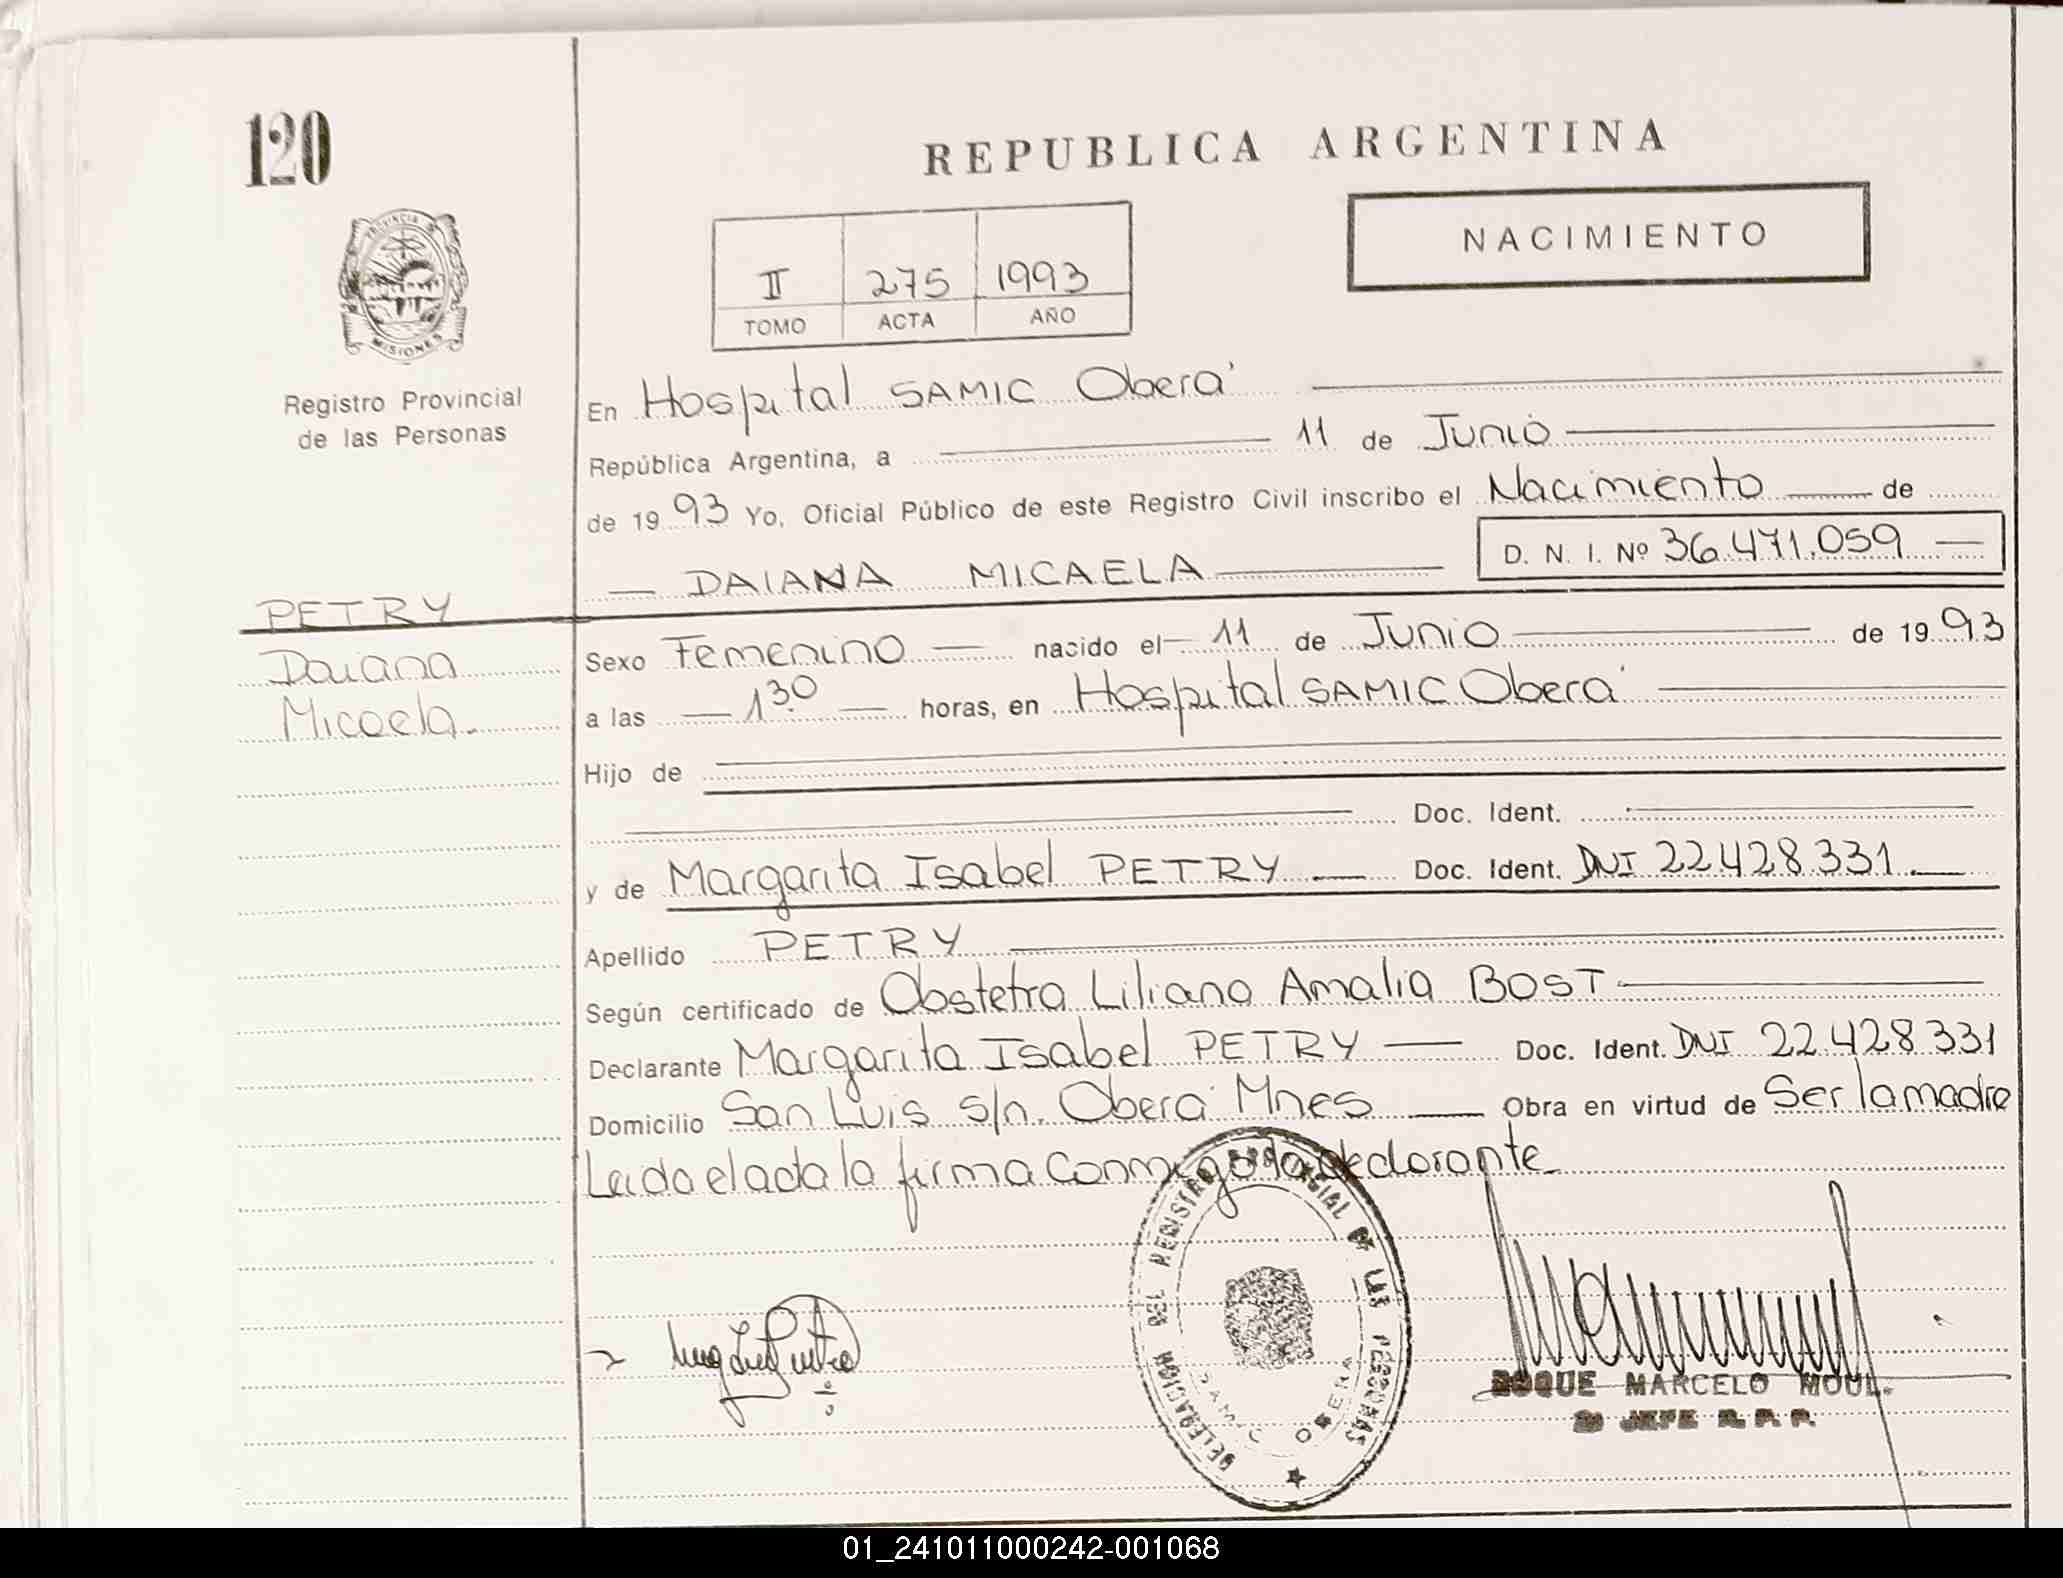 120
REPUBLICA ARGENTINA
NACIMIENTO
II 275 1993
TOMO ACTA AÑO
PROVINCIA
MISIONES
Registro Provincial
de las Personas
En Hospital SAMIC Oberá
República Argentina, a 11 de Junio
de 1993 Yo, Oficial Público de este Registro Civil inscribo el Nacimiento de
DAIANA MICAELA D. N. I. Nº 36.471.059
PETRY
Daiana
Micaela.
Sexo Femenino nacido el 11 de Junio de 1993
a las 1.30 horas, en Hospital SAMIC Oberá
Hijo de
Doc. Ident.
y de Margarita Isabel PETRY Doc. Ident. DNI 22.428.331
Apellido PETRY
Según certificado de Obstetra Liliana Amalia BOST
Declarante Margarita Isabel PETRY Doc. Ident. DNI 22.428.331
Domicilio San Luis s/n. Oberá Mnes Obra en virtud de Ser la madre
Leida el acta la firma conmigo la declarante
DELEGACION DEL REGISTRO PROVINCIAL DE LAS PERSONAS
SAMIC OBERA
ROQUE MARCELO
JEFE R. P. P.
01_241011000242-001068